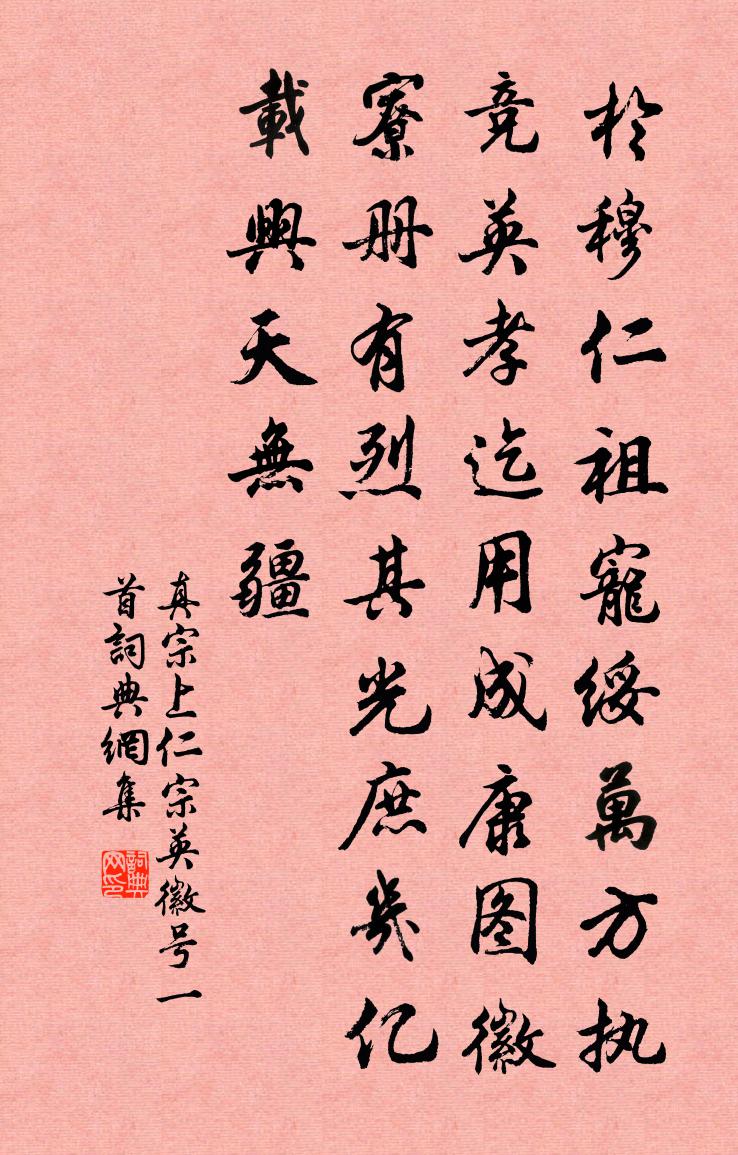 於穆仁祖寵綏萬方执
竞英孝迄用成康图徽
寮册有烈其光庶幾亿
載興天無疆
真宗上仁宗英徽号一
首詞典網集
詞典网印